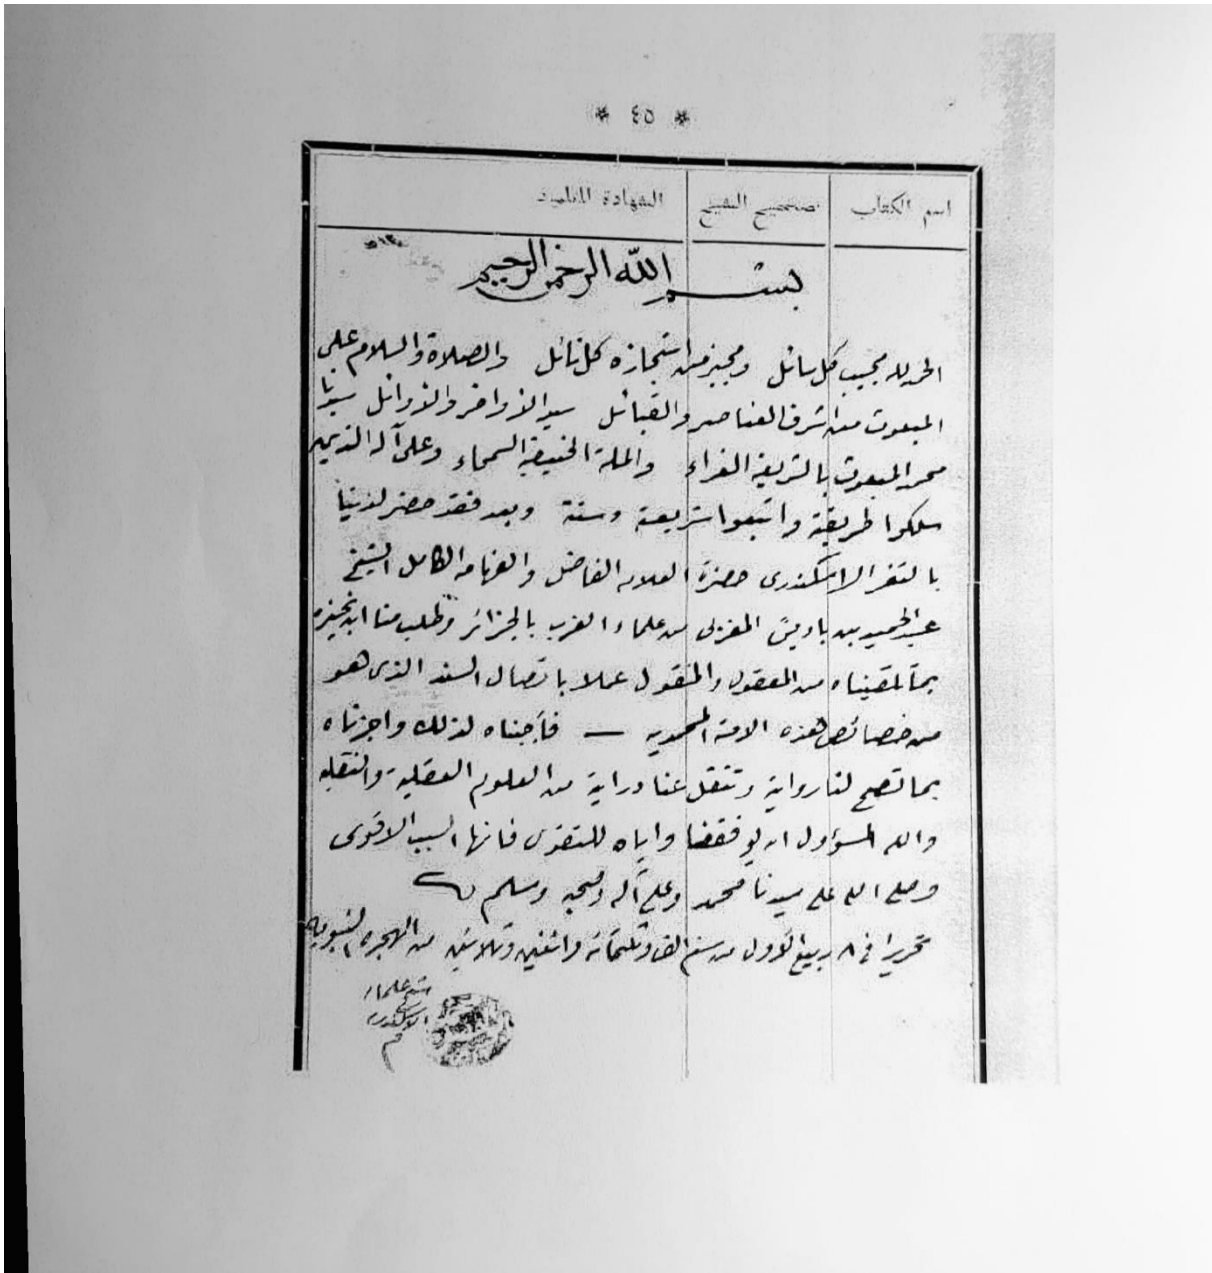 * ٤٥ *
اسم الكتاب تصحيح الشيخ الشهادة
بسم الله الرحمن الرحيم
الحمد لله مجيب كل سائل ومجيز من استجازه كل نائل والصلاة والسلام على
المبعوث من اشرف العناصر والقبائل سيد الاواخر والاوائل سيدنا
محمد المبعوث بالشريعة الغراء والملة الحنيفية السمحاء وعلى آله الذين
سلكوا طريقته واتبعوا شريعته وسنته وبعد فقد حضر لدينا
بالثغر الاسكندرى حضرة العلامه الفاضل والفهامه الكامل الشيخ
عبد الحميد بن باديس المغربى من علماء الغرب بالجزائر وطلب منا ان نجيزه
بما تلقيناه من المعقول والمنقول عملا باتصال السند الذى هو
من خصائص هذه الامة المحمديه — فأجبناه لذلك واجزناه
بما تصح لنا رواية وتنقل عنا دراية من العلوم العقلية والنقليه
والله المسؤول ان يوفقنا واياه للتقوى فانها السبب الاقوى
وصلى الله على سيدنا محمد وعلى آله وصحبه وسلم
تحريرا فى ٨ ربيع الأول من سنة الف وثلثمائة واثنين وثلاثين من الهجره النبويه
شيخ علماء
الاسكندريه